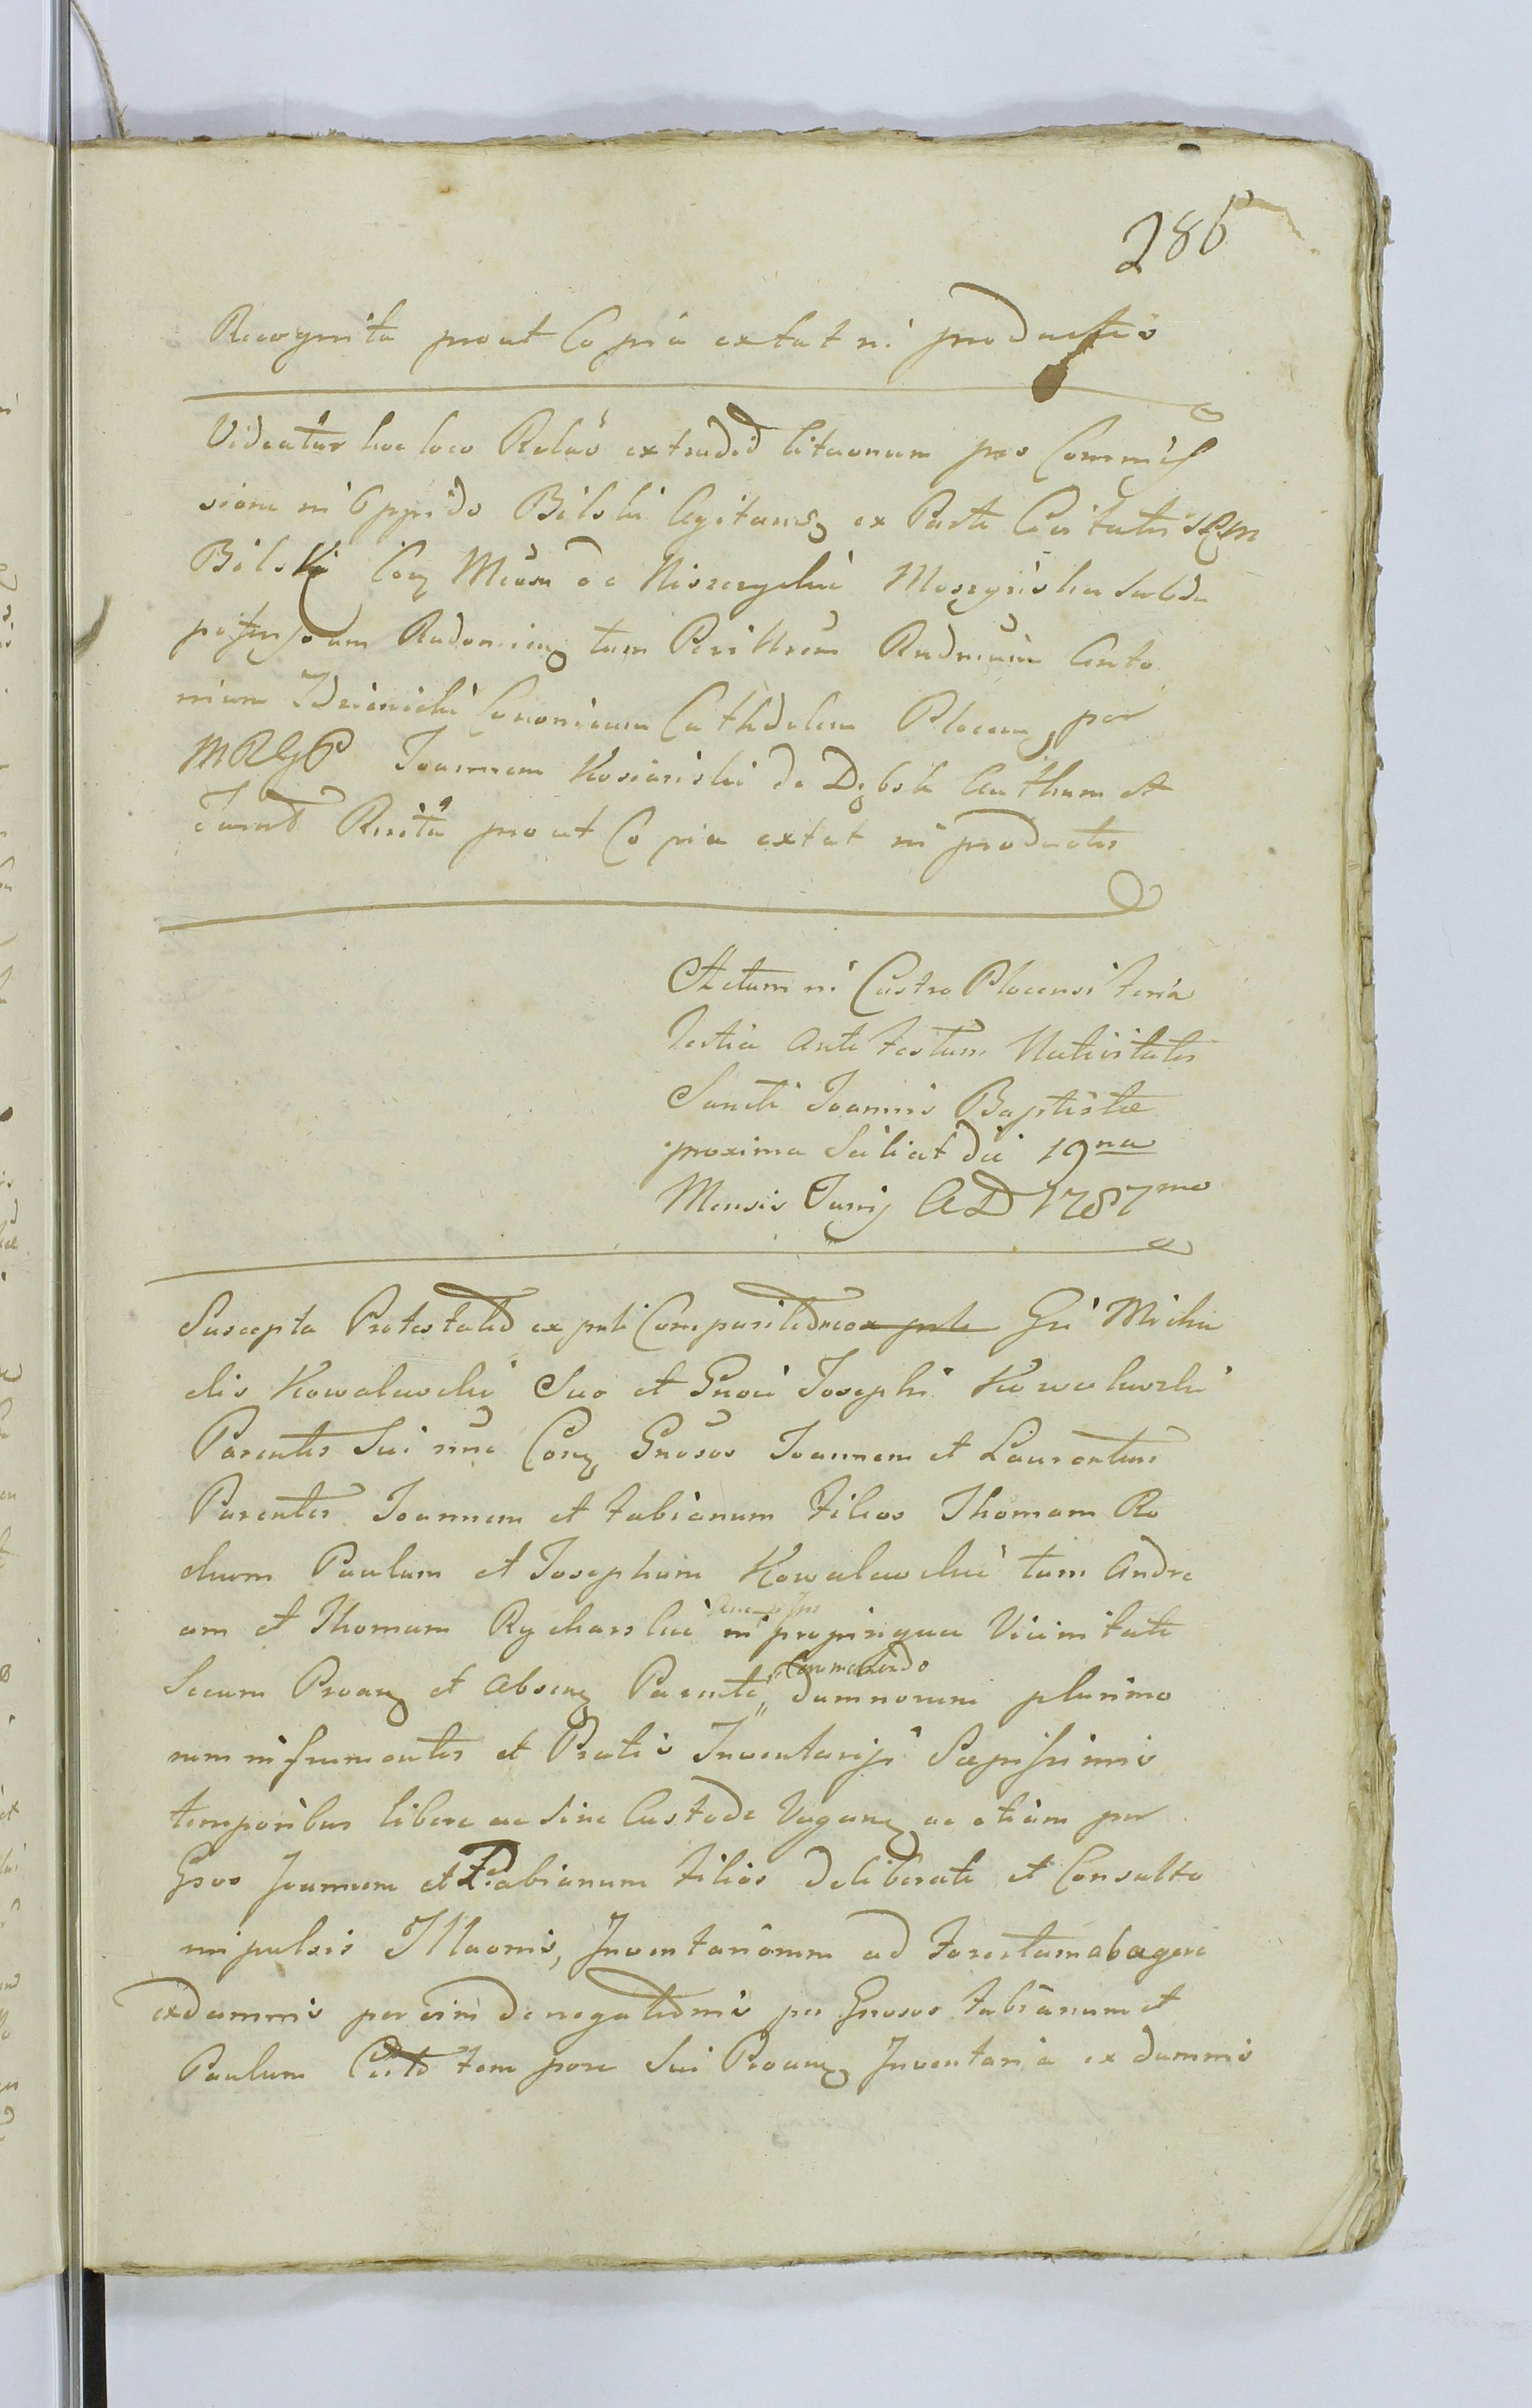 286
Recognita prout Copia extat in productis
Videatur hoc loco Relaõ extradið litaonum pro Commis
sione in Oppido Bilski agitan ex Parte Civitatis
Bilski Con Mcũm de Niszczyckie Moszyński
Radomien tum Perillrem Rndmum Anto
nium Zdzienicki Canonicum Cathdelem Plocen per
MRGP Joannem Kosinski de Dębsk Authum et
Jurat Rcita prout Copia extat in productis
Actum in Castro Plocensi feria
Tertia ante Festum Nativitatis
Sancti Joannis Baptistæ
proxima Scilicet die 19na
Mensis Junij AD 1787mo
Suscepta Protestatio ex prti Comparitione ex prte Gsi Micha
elis Kowalewski Suo et Gnosi Josephi Kowalewski
Parentis Sui nne Con Gnosos Joannem et Laurentium
Parentes Joannem et Fabianum Filios Thomam Ro
chum Paulum et Josephum Kowalewskie tum Andre
am et Thomam Rycharskie in propinqua Vicinitate
Secum Proan et absen Parente,, Commorando damnorum plurimo
rum in frumentis et Pratis Inventarijs Sæpissimis
temporibus libere ac Sine Custode Vagan ac etiam per
Gsos Joannem et Fabianum Filios deliberate et Consulto
impulsis Illaonis, Inventariorum ad Forestam abagere
ex damnis per vim denegationis per Gnosos Fabianum et
Paulum Certo tempore Sui Proan Inventaria ex damnis